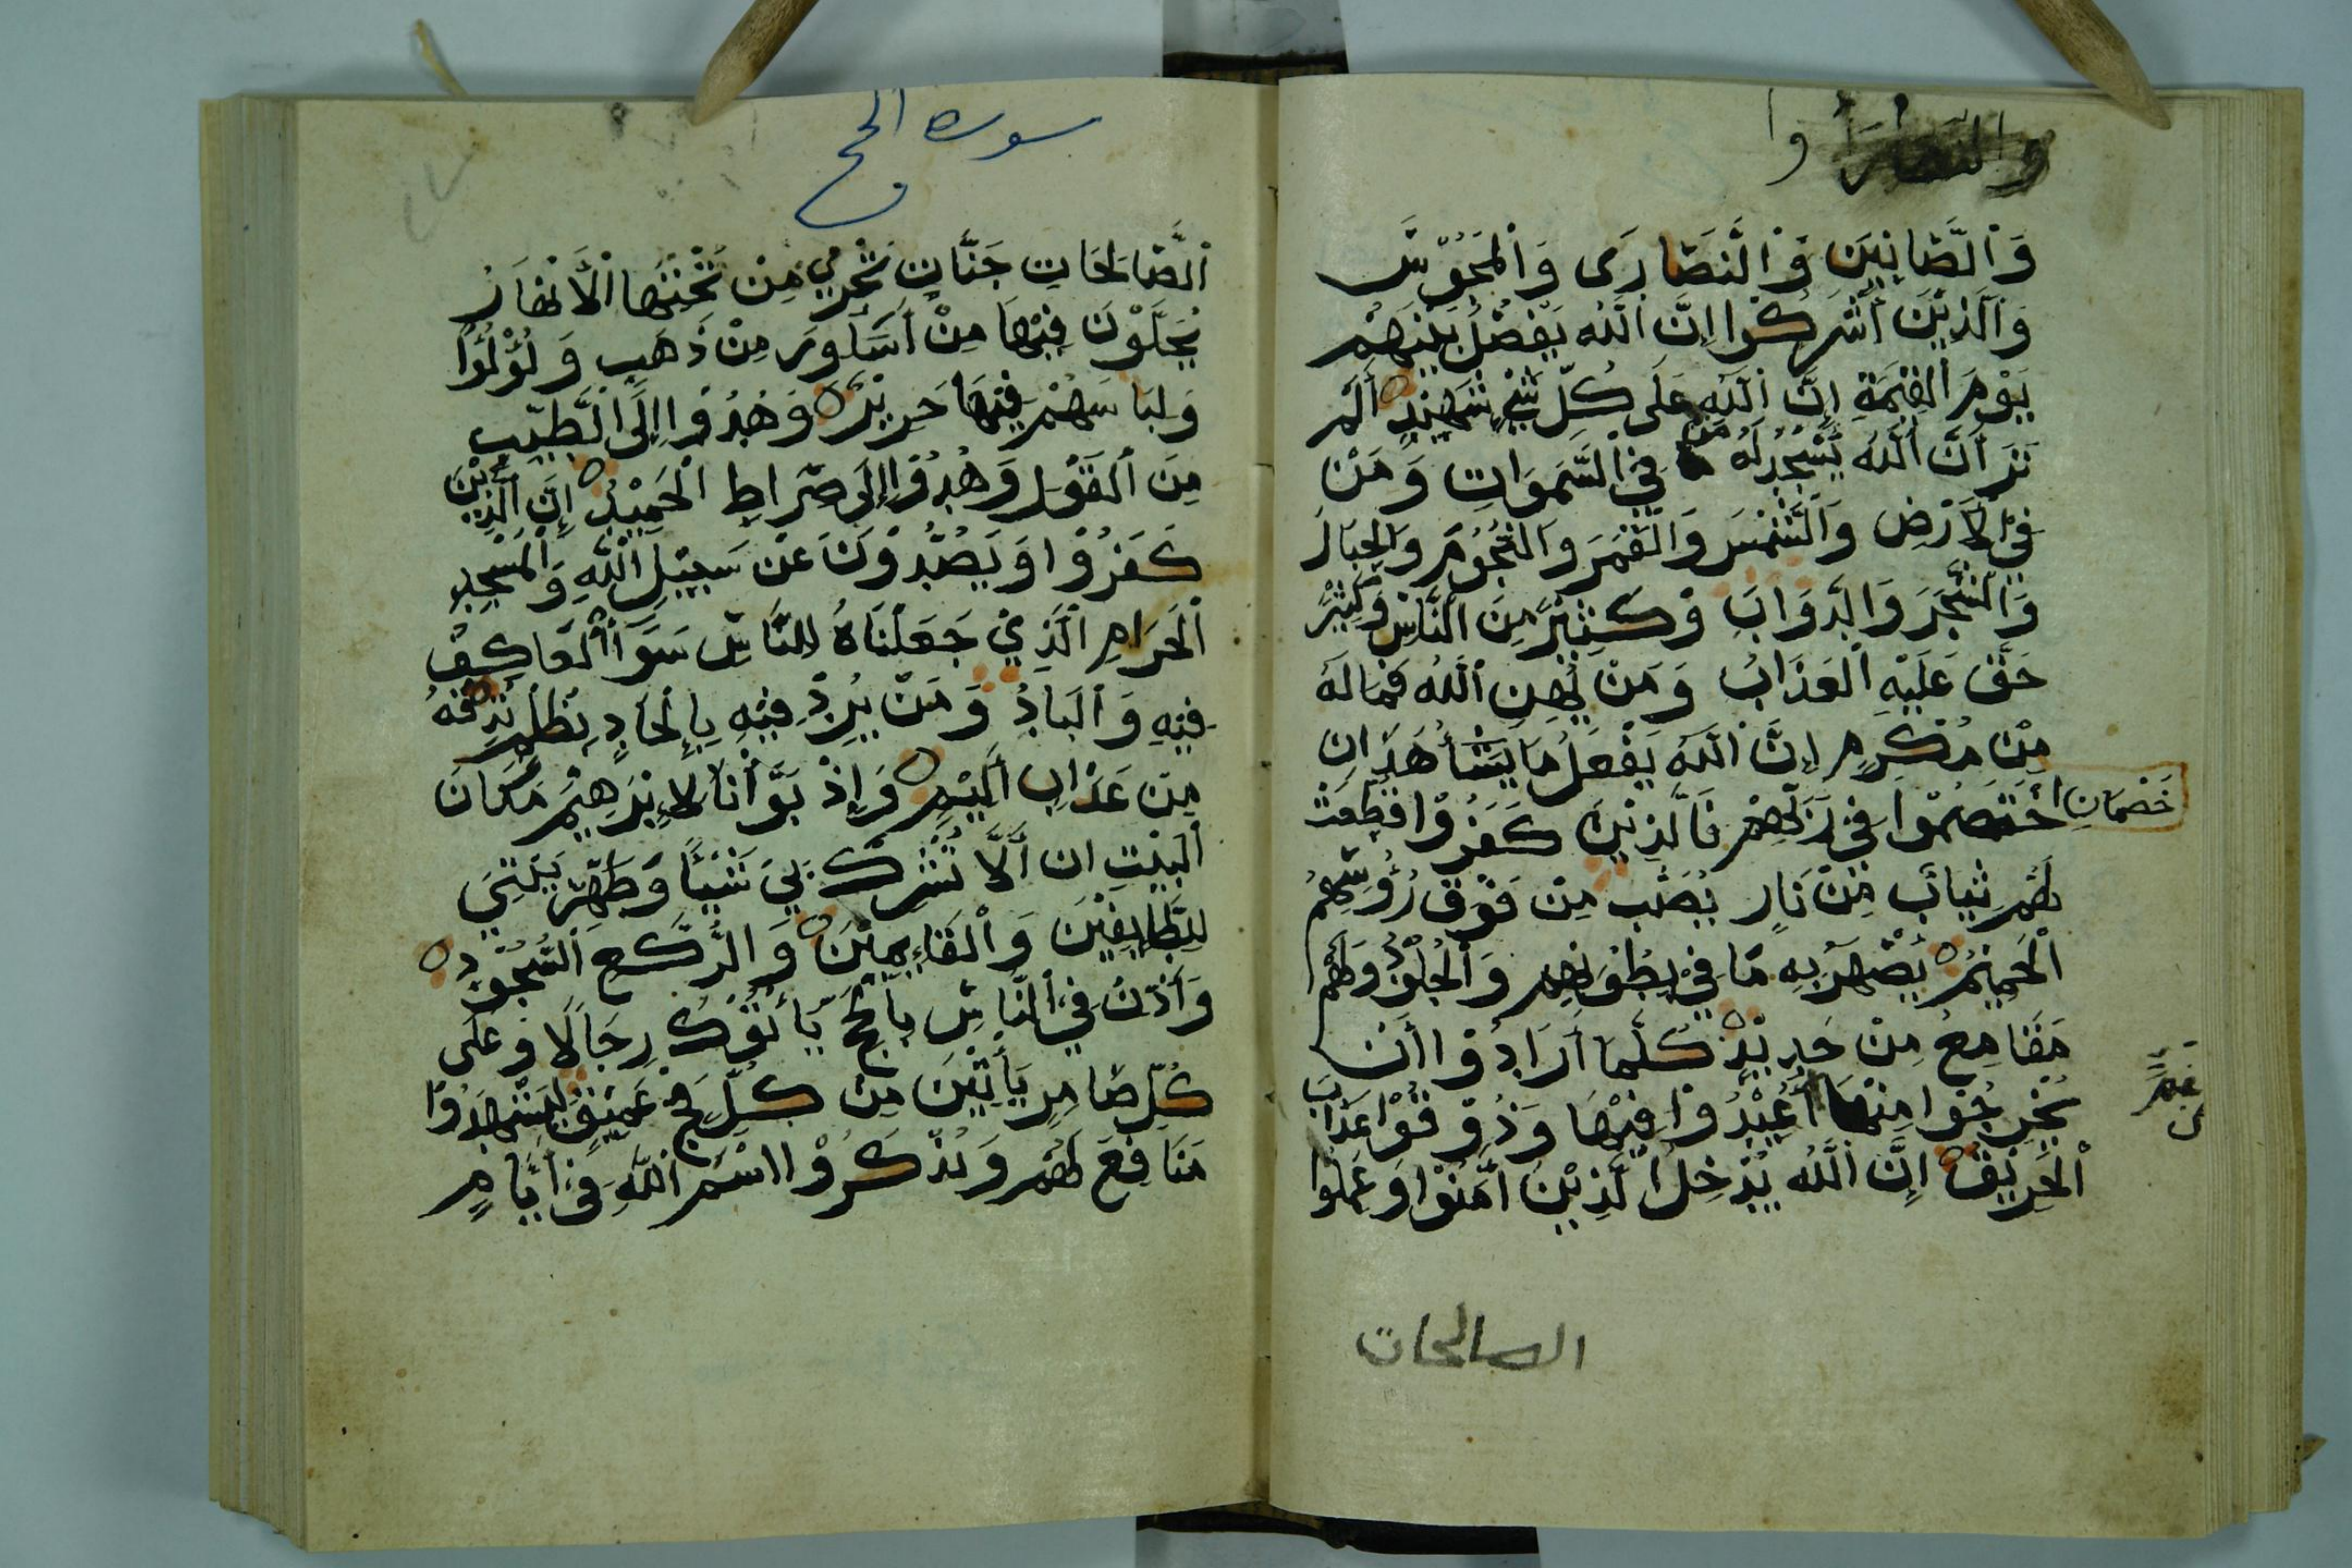 والنصارا وا
وَالصَّابِئِيْنَ وَالنَّصَارَى وَالْمَجُوْسَ
وَالَّذِيْنَ أَشْرَكُوْا إِنَّ اللّٰهَ يَفْصِلُ بَيْنَهُمْ
يَوْمَ الْقِيٰمَةِ إِنَّ اللّٰهَ عَلَى كُلِّ شَيْءٍ شَهِيْدٌ أَلَمْ
تَرَ أَنَّ اللّٰهَ يَسْجُدُ لَهُ مَنْ فِي السَّمَوَاتِ وَمَنْ
فِي الْأَرْضِ وَالشَّمْسَ وَالْقَمَرَ وَالنُّجُوْمَ وَالْجِبَالَ
وَالشَّجَرَ وَالدَّوَابَ وَكَثِيْرٌ مِنَ النَّاسِ وَكَثِيْرٌ
حَقَّ عَلَيْهِ الْعَذَابُ وَمَنْ يُهِنِ اللّٰهُ فَمَا لَهُ
مِنْ مُكْرِمٍ إِنَّ اللّٰهَ يَفْعَلُ مَا يَشَأُ هَذَانِ
خَصْمَانِ اخْتَصَمُوْا فِي رَبِّهِمْ فَالَّذِيْنَ كَفَرُوْا قُطِّعَتْ
لَهُمْ ثِيَابٌ مِنْ نَارٍ يُصَبُّ مِنْ فَوْقِ رُؤُسِهِمُ
الْحَمِيْمُ يُصْهَرُ بِهِ مَا فِي بُطُوْنِهِمْ وَالْجُلُوْدُ وَلَهُمْ
مَقَامِعُ مِنْ حَدِيْدٍ كُلَّمَا أَرَادُوْا أَنْ
يَخْرُجُوْا مِنْهَا أُعِيْدُوْا فِيْهَا وَذُوْقُوْا عَذَابَ
الْحَرِيْقِ إِنَّ اللّٰهَ يُدْخِلُ الَّذِيْنَ أَمَنُوْا وَعَمِلُوا
الصالحات
سوره الحج
الصَّالِحَاتِ جَنَّاتٍ تَجْرِيْ مِنْ تَحْتِهَا الْأَنْهَارُ
يُحَلَّوْنَ فِيْهَا مِنْ أَسَاوِرَ مِنْ ذَهَبٍ وَلُؤْلُؤًا
وَلِبَاسُهُمْ فِيْهَا حَرِيْرٌ وَهُدُوْا إِلَى الطَّيِّبِ
مِنَ الْقَوْلِ وَهُدُوْا إِلَى صِرَاطِ الْحَمِيْدِ إِنَّ الَّذِيْنَ
كَفَرُوْا وَيَصُدُّوْنَ عَنْ سَبِيْلِ اللّٰهِ وَالْمَسْجِدِ
الْحَرَامِ الَّذِيْ جَعَلْنَاهُ لِلنَّاسِ سَوَاً الْعَاكِفُ
فِيْهِ وَالْبَادِ وَمَنْ يُرِدْ فِيْهِ بِإِلْحَادٍ بِظُلْمٍ نُذِقْهُ
مِنْ عَذَابٍ أَلِيْمٍ وَإِذْ بَوَّأْنَا لِإِبْرٰهِيْمَ مَكَانَ
الْبَيْتِ ان أَلَّا تُشْرِكْ بِيْ شَيْئًا وَطَهِّرْ بَيْتِيَ
لِلطَّايِفِيْنَ وَالْقَايِمِيْنَ وَالرُّكَّعِ السُّجُوْدِ
وَأَذِّنْ فِي النَّاسِ بِالْحَجِّ يَأْتُوْكَ رِجَالًا وَعَلَى
كُلِّ ضَامِرٍ يَأْتِيْنَ مِنْ كُلِّ فَجٍّ عَمِيْقٍ لِيَشْهَدُوْا
مَنَافِعَ لَهُمْ وَيَذْكُرُوْا اسْمَ اللّٰهِ فِيْ أَيَّامٍ